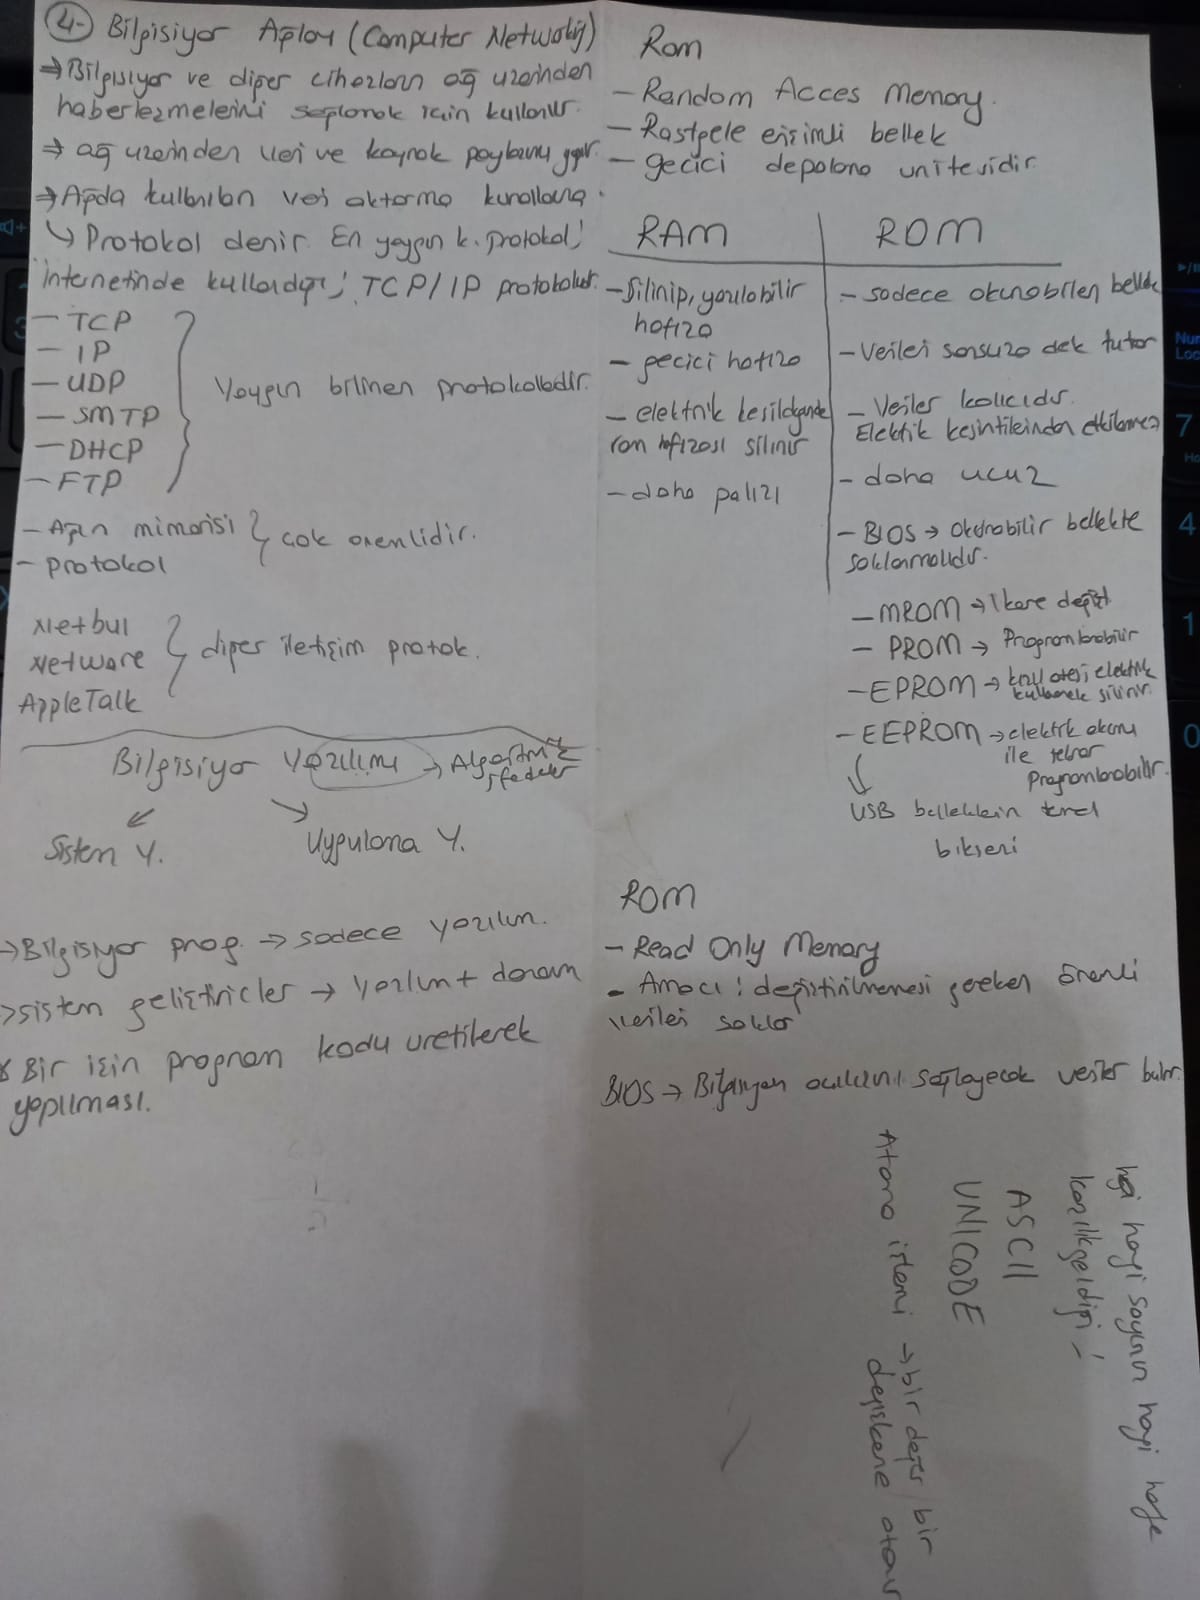 4- Bilgisiyor Ağları (Computer Networkig)
⇒ Bilgisiyor ve diğer cihazların ağ üzerinden
haberleşmelerini sağlamak için kullanılır.
⇒ ağ üzerinden veri ve kaynak paylaşımı yapılır.
⇒ Ağda kullanılan veri aktarma kurallarına
↳ Protokol denir. En yaygın k. protokol;
İnternetinde kullandığı; TCP/IP protokolüdür.
- TCP
- IP
- UDP
- SMTP
- DHCP
- FTP
Yaygın bilinen protokollerdir.
- Ağın mimarisi
- Protokol
çok önemlidir.
Netbul
Netware
AppleTalk
diğer iletişim protok.
Bilgisiyar Yazılımı → Algoritmik ifadeler
Sistem Y.
Uygulama Y.
→ Bilgisiyar prog. → sadece yazılım.
→ sistem geliştiriciler → yazılım + donanım
Bir işin program kodu üretilerek
yapılması.
Rom
- Random Acces Memory.
- Rastgele erişimli bellek
- geçici depolama unitesidir.
RAM
- Silinip, yazılabilir
hafıza
- geçici hafıza
- elektrik kesildiğinde
ram hafızası silinir
- daha pahalı
ROM
- sadece okunabilen bellek
- Verileri sonsuza dek tutar
- Veriler kalıcıdır.
Elektik kesintilerinden etkilenmez
- daha ucuz
- BIOS → okunabilir bellekte
saklanmalıdır.
- MROM → 1 kere değişt
- PROM → Programlanabilir
- EPROM → kızıl ötesi elektrik
kullanarak silinir.
- EEPROM → elektrik akımı
ile tekrar
Programlanabilir.
USB belleklerin temel
bikseni
ROM
- Read Only Memory
- Amacı: değiştirilmemesi gereken önemli
verileri saklar
BIOS → Bilgisiyarın açılışını sağlayacak veriler bulunur.
hangi sayının hangi harfe
karşılık geldiği
ASCII
UNICODE
Atama işlemi → bir değer bir
değişkene atanır